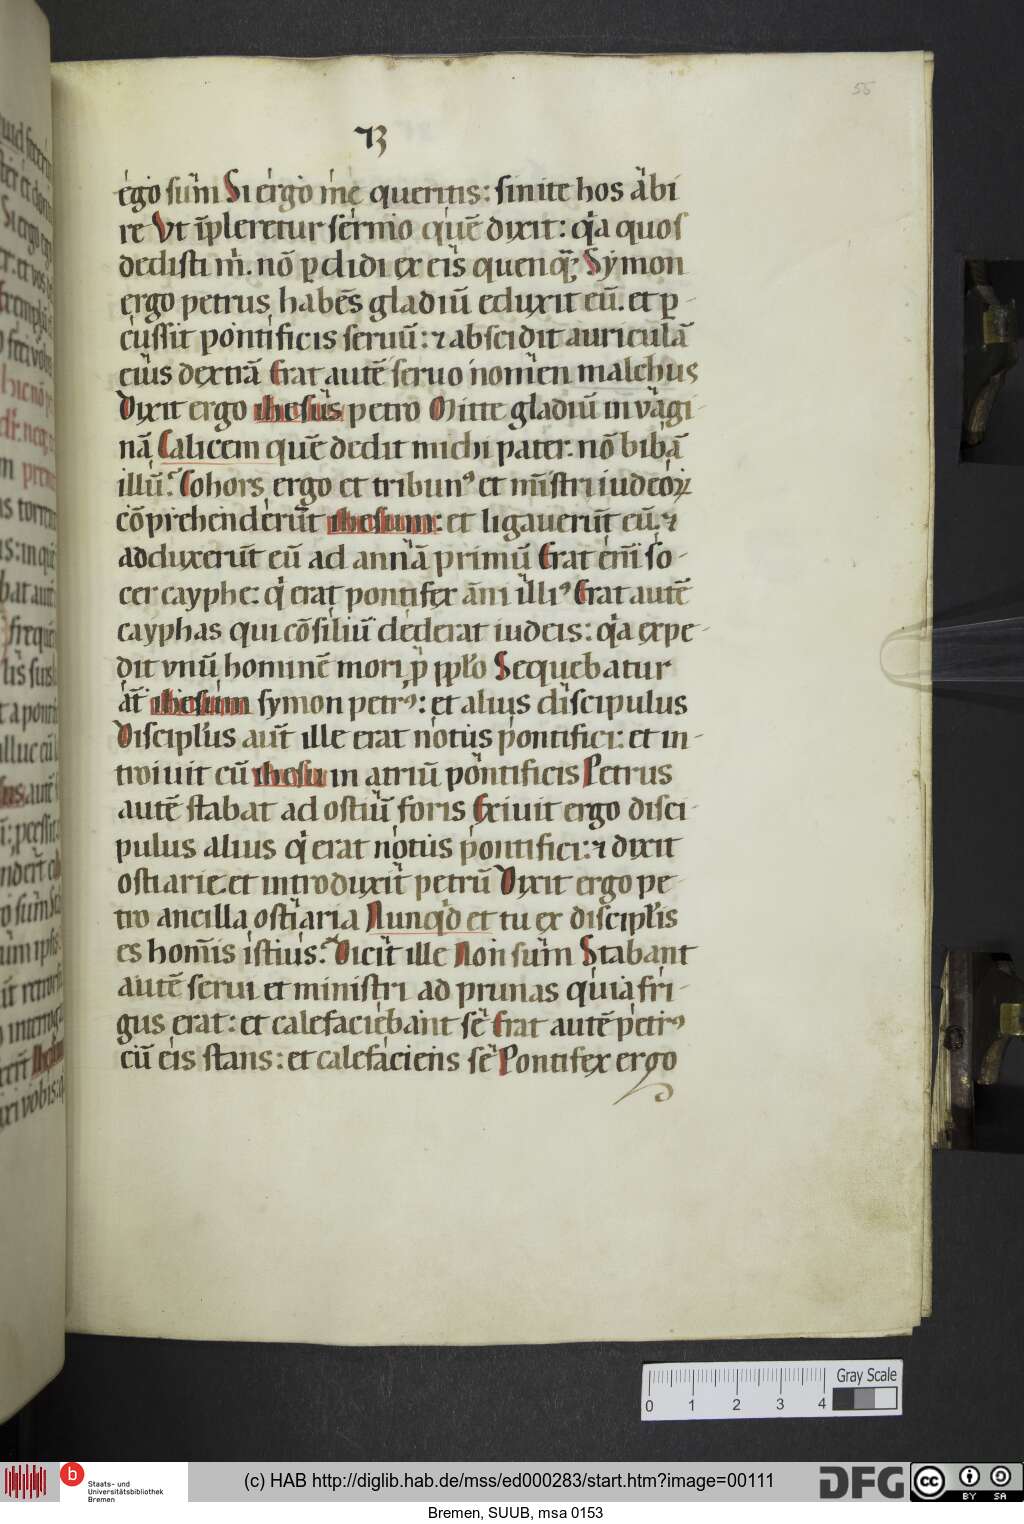 55
ego sum Si ergo me queritis: sinite hos abi
re Vt īpleretur sermo quē dixit: qͥa quos
dedisti mͥ. nō ꝑdidi ex eis quenqᷓꝫ Symon
ergo petrus habēs gladiū eduxit eū. et ꝑ-
cussit pontificis seruū: ⁊ abscidit auriculā
eius dextrā Erat autē seruo nomen malchus
Dixit ergo ihesus petro Mitte gladiū in vagi-
nā Calicem quē dedit michi pater: nō bibā
illū? Cohors ergo et tribunꝰ et mīstri iudeoꝝ
cōprehenderūt ihesum: et ligauerūt eū. ⁊
adduxerūt eū ad annā primū Erat em̄ so-
cer cayphe: qͥ erat pontifex āni illiꝰ Erat autē
cayphas qui cōsiliū dederat iudeis: qͥa expe-
dit vnū hominē mori p̄ ppl̄o Sequebatur
āt ihesum symon petrꝰ: et alius discipulus
Discipl̄us aūt ille erat notus pontifici: et in-
troiuit cū ihesu in atriū pontificis Petrus
autē stabat ad ostiū foris Exiuit ergo disci-
pulus alius qͥ erat notus pontifici: ⁊ dixit
ostiarie: et introduxit petrū Dixit ergo pe
tro ancilla ostiaria Nunqͥd et tu ex discipl̄is
es homīs istius? Dicit ille Non sum Stabant
autē serui et ministri ad prunas quia fri-
gus erat: et calefaciebant sē Erat autē petrꝰ
cū eis stans: et calefaciens sē Pontifex ergo
Gray Scale
0 1 2 3 4
b
Staats- und
Universitätsbibliothek
Bremen
(c) HAB http://diglib.hab.de/mss/ed000283/start.htm?image=00111
DFG
cc BY SA
Bremen, SUUB, msa 0153